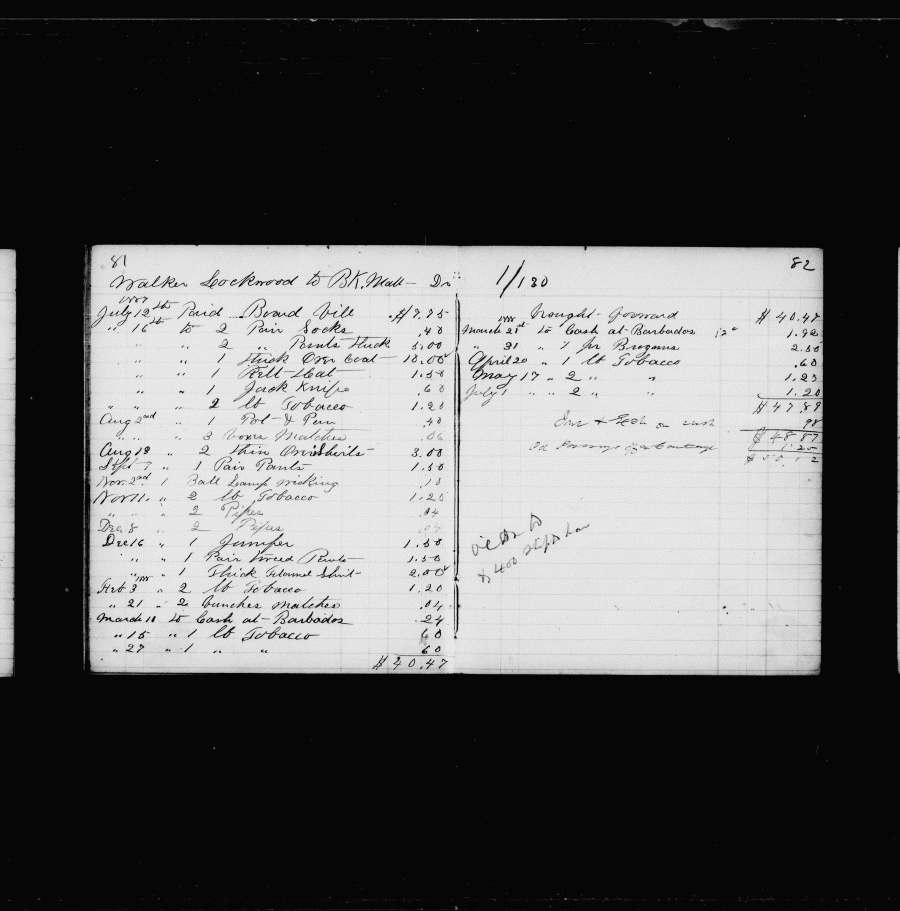 81
Walker Lockwood to B.K. Matt Dr
July 12th Paid Board Bill $7.75
" 16th to 2 Pair Socks .40
" " 2 " Pants thick 5.00
" " 1 thick Over Coat 10.00
" " 1 Felt Hat 1.50
" " 1 Jack Knife .60
" " " 2 lb Tobacco 1.20
Aug 2nd " 1 Pot & Pan .40
" " " 3 boxes Matches .06
Aug 18 " 2 thin Overshirts 3.00
Sept 7 " 1 Pair Pants 1.50
Nov. 2nd 1 Ball Lamp wicking .10
Nov 11 " 2 lb Tobacco 1.20
" " " 2 Pipes .04
Dec 8 " 2 Pipes
Dec 16 " 1 Jumper 1.50
" " 1 Pair tweed Pants 1.50
" " 1 Thick Flannel Shirt 2.00
Feb 3 " 2 lb Tobacco 1.20
" 21 " 2 bunches matches .04
March 10 to Cash at Barbados .24
" 15 " 1 lb Tobacco 60
" 27 " 1 " " 60
$40.47
82
1/130
brought forward $40.47
March 21st to Cash at Barbados 1.92
" 31 " 1 pr Brogans 2.50
April 20 " 1 lb Tobacco .60
May 17 " 2 " " 1.20
July 1 " " 2 " " 1.20
$47.89
on cash 98
$48.87
1.25
$50.12
$400